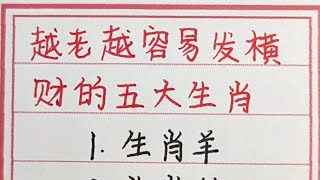 越老越容易发横
财的五大生肖
1. 生肖羊